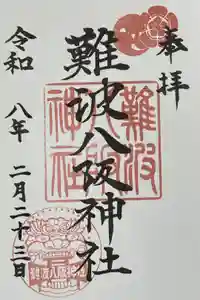 奉拝
難波八阪神社
難波
八阪
神社
令和 八年 二月二十三日
難波八阪神社